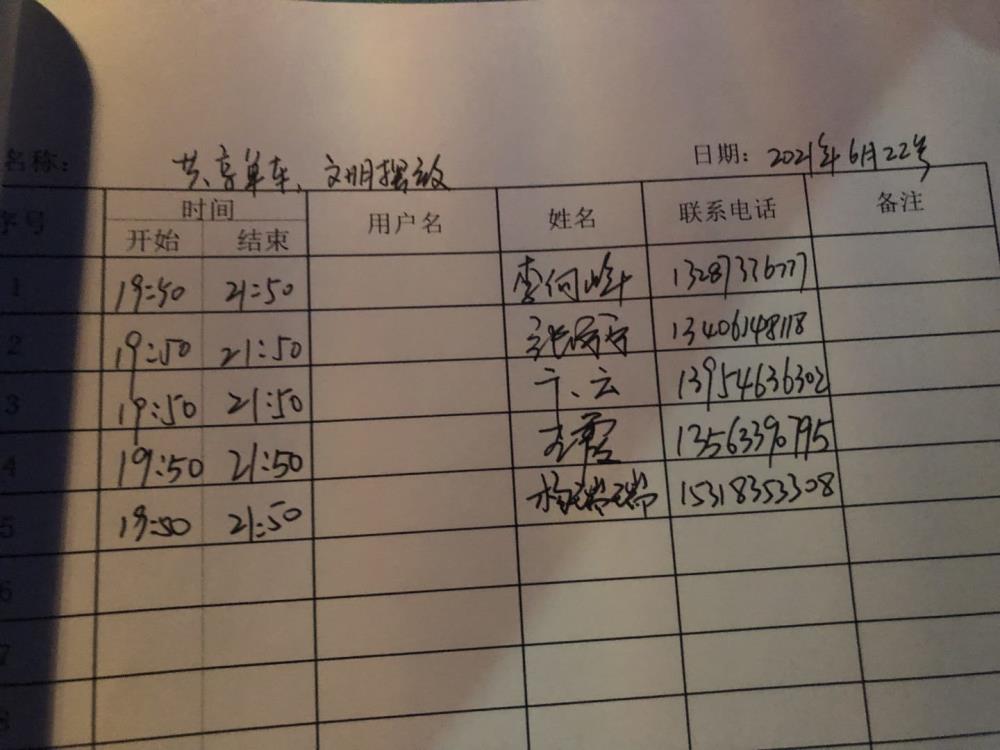 名称： 共享单车、文明摆放 日期： 2021年6月22号
序号 时间 用户名 姓名 联系电话 备注
开始 结束
1 19:50 21:50 李何峰 13287376777
2 19:50 21:50 张 13406148118
3 19:50 21:50 云 13954636302
4 19:50 21:50 13563390795
5 19:50 21:50 杨瑞瑞 15318353308
6
7
8